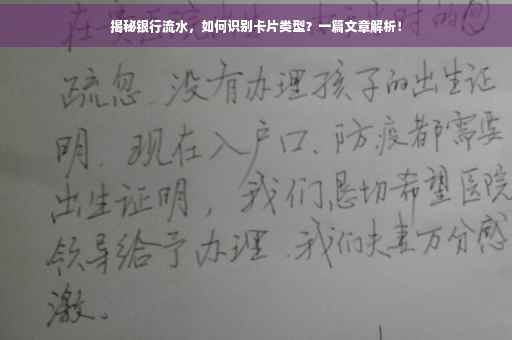 揭秘银行流水，如何识别卡片类型？一篇文章解析！
疏忽、没有办理孩子的出生证
明、现在入户口、防疫都需要
出生证明，我们恳切希望医院
领导给予办理、我们夫妻万分感
激。